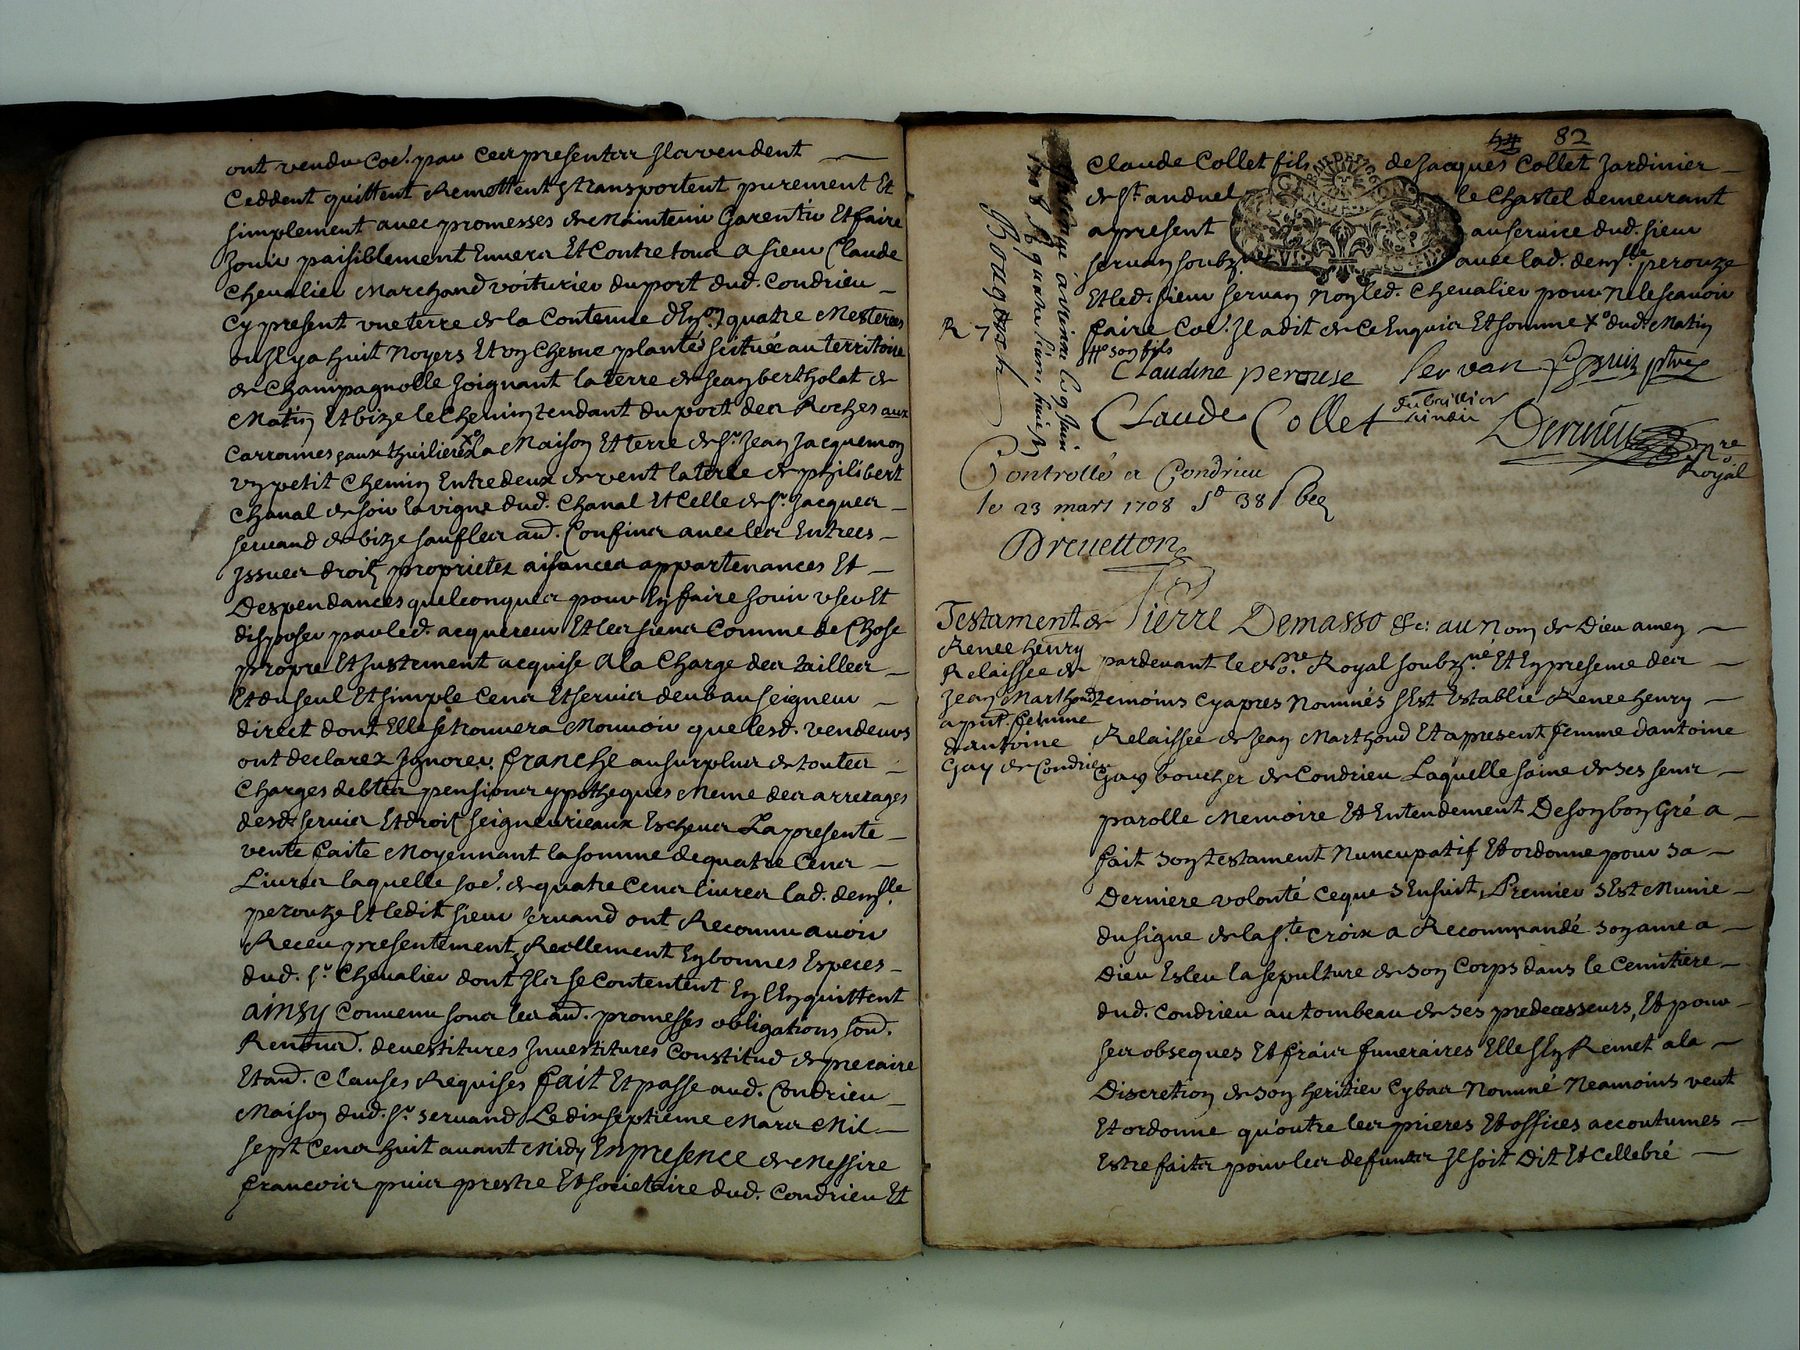 ont vendu co&.̃ par ces presentes Ils vendent
Ceddent quittent Remettent & transportent purement Et
simplement avec promesses de Maintenir Garentir Et faire
Jouir paisiblement Envers Et Contre tous a sieur Claude
Chevalier Marchand voiturier du port dud. Condrieu
Cy present une terre de la Contenue d'En.on quatre Mesterées
ou Il y a huit Noyers Et un Chesne planté scituée au territoire
de Champagnolle Joignant la terre de Jean bertholat de
Matin Et bize le Chemin tendant du port des Roches aux
Carronnes & aux thuilieres la Maison Et terre de sr. Jean Jacquemon
un petit Chemin Entre deux de vent la terre de philibert
Chanal de soir la vigne dud. Chanal Et Celle de sr. Jacques
servand de bize sauf les au.d Confins avec les Entrées
Issues droits proprietez aisances appartenances Et
Despendances quelconques pour En faire Jouir user Et
disposer par led. acquereur Et les siens Comme de Chose
propre Et Justement acquise a la Charge des tailles
Et du seul Et simple Cens Et servis deub au seigneur
direct dont Elle se trouvera Mouvoir que lesd. vendeurs
ont declarez Ignorer. franche au surplus de toutes
Charges debtes pensions ypotheques Meme des arrerages
desd. servis Et droits seigneurieaux Escheus La presente
vente faite Moyennant la somme de quatre Cens
Livres laquelle so&. de quatre Cens livres lad. demlle
perouze Et ledit sieur servand ont Reconnu avoir
Receu presentement & Reellement En bonnes Especes
dud. sr. Chevalier dont Ils se Contentent En l'En quittent
ainsy Convenu sous les au.d promesses obligations soud.
Renond. devestitures Investitures Constitud de precaire
Et aud. Clauses Requises fait Et passé aud. Condrieu
Maison dud. sr. servand Le dixseptieme Mars Mil
sept Cens huit avant Midy En presence de Messire
francois puis prestre Et societaire dud. Condrieu Et
44 82
Claude Collet fils de Jacques Collet Jardinier
de st. anduel le Chastel demeurant
a present au service dud. sieur
servan soubz. avec lad. demlle perouze
Et led. sieur servan Non led. Chevalier pour ne le scavoir
R 7
faire Co&. Il a dit de Ce Enquis Et sommé Xo dud. Matin
Ho son fils
Claudine perouse servan f puis ptre
Claude Collet
Dervieu
Nre Royal
Bouqtock
Controllé a Condrieu
le 23 mars 1708 Rd 38
Drevetton
Testament de
Renee henry
Relaissée de
Jean Marthoud
a pnt. femme
d'antoine
Gay de Condrieu
Pierre Demasso &c: au Nom de Dieu amen
pardevant le Nore Royal soubzne Et En presence des
temoins Cyapres Nommés s'Est Establie Renee henry
Relaissée de Jean Marthoud Et a present femme d'antoine
Gay boucher de Condrieu Laquelle saine de ses sens
parolle Memoire Et Entendement De son bon Gré a
fait son testament Nuncupatif Et ordonne pour sa
Derniere volonté Ce que s'Ensuit, Premier s'Est Munie
du signe de la ste. Croix a Recommandé son ame a
Dieu Esleu la sepulture de son Corps dans le Cemitiere
dud. Condrieu au tombeau de ses predecesseurs, Et pour
ses obseques Et frais funeraires Elle s'En Remet a la
Discretion de son heritier Cybas Nommé Neamoins veut
Et ordonne qu'outre les prieres Et offices accoutumes
Estre faits pour les defunts Il soit Dit Et Cellebré